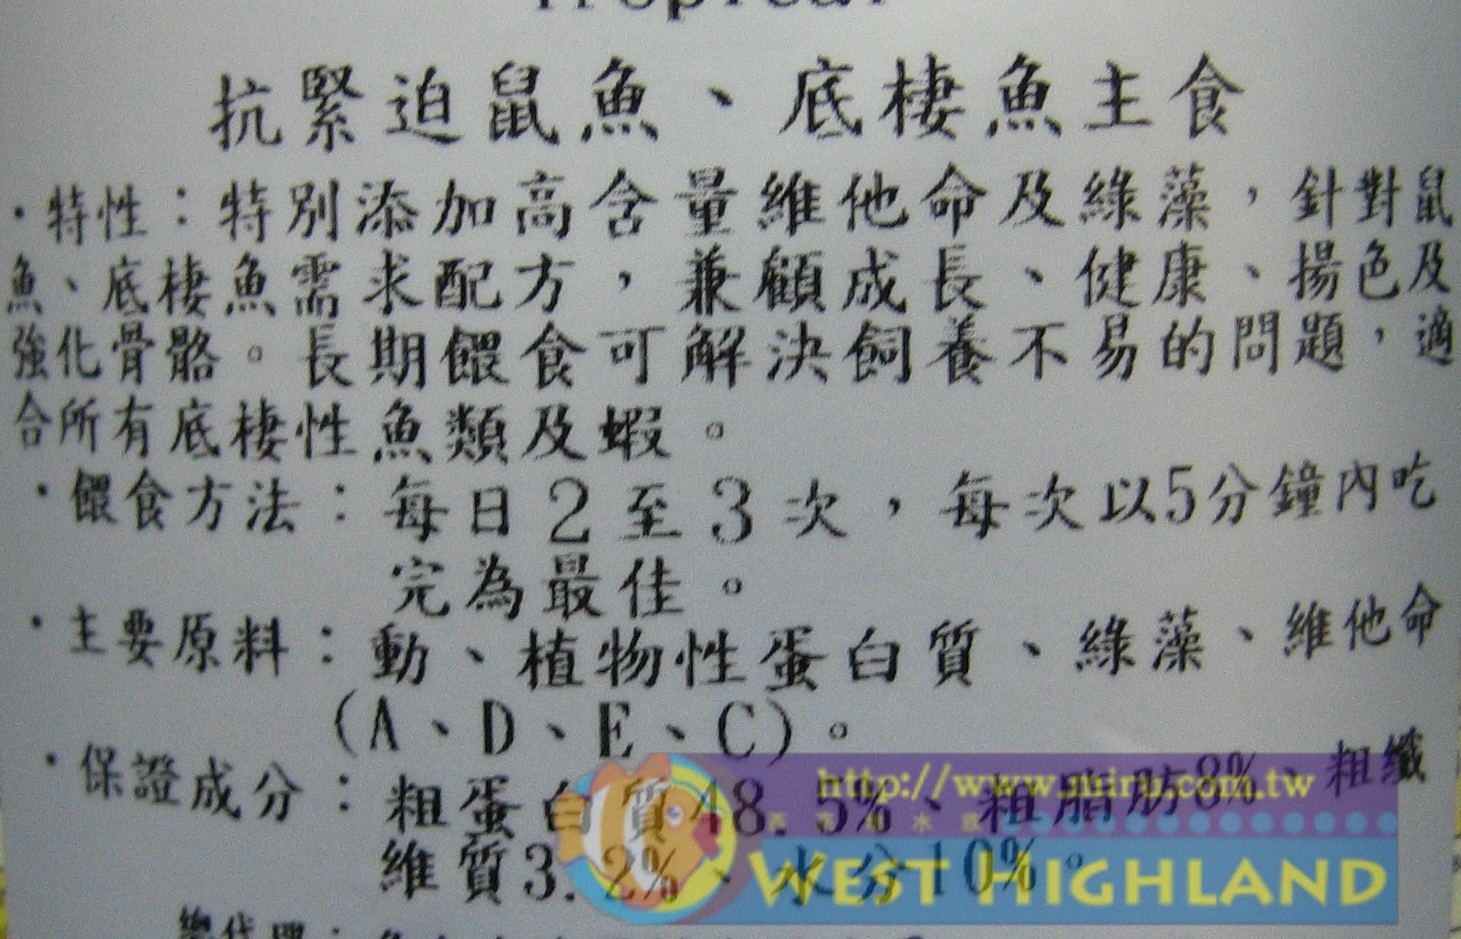 Tropical
抗緊迫鼠魚、底棲魚主食
·特性：特別添加高含量維他命及綠藻，針對鼠
魚、底棲魚需求配方，兼顧成長、健康、揚色及
強化骨骼。長期餵食可解決飼養不易的問題，適
合所有底棲性魚類及蝦。
·餵食方法：每日2至3次，每次以5分鐘內吃
完為最佳。
·主要原料：動、植物性蛋白質、綠藻、維他命
(A、D、E、C)。
·保證成分：粗蛋白質48.5%、粗脂肪8%、粗纖
維質3.2%、水分10%。
http://www.miru.com.tw
水族
WEST HIGHLAND
總代理：